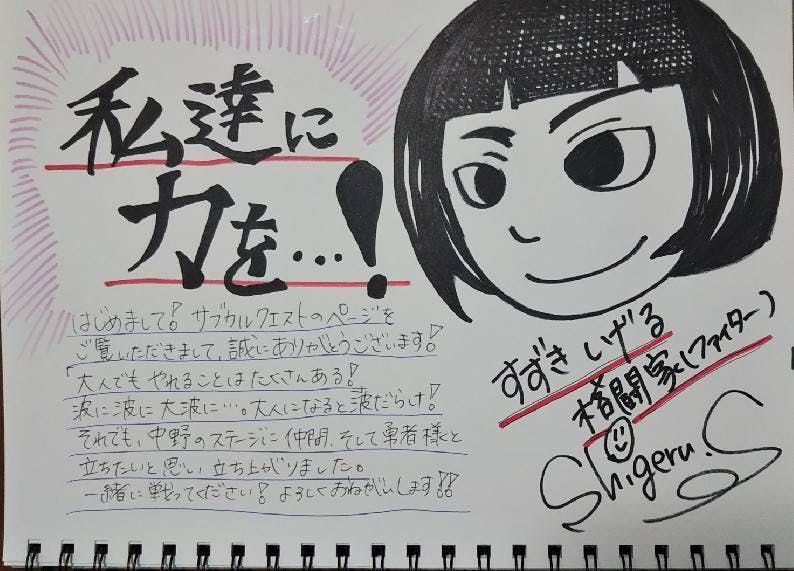 私達に
力を…!
はじめまして! サブカルクエストのページを
ご覧いただきまして、誠にありがとうございます!
「大人でもやれることはたくさんある!
波に波に大波に…。大人になると波だらけ!
それでも、中野のステージに仲間、そして勇者様と
立ちたいと思い立ち上がりました。
一緒に戦ってください! よろしくおねがいします!!
すずき しげる
格闘家(ファイター)
Shigeru.S